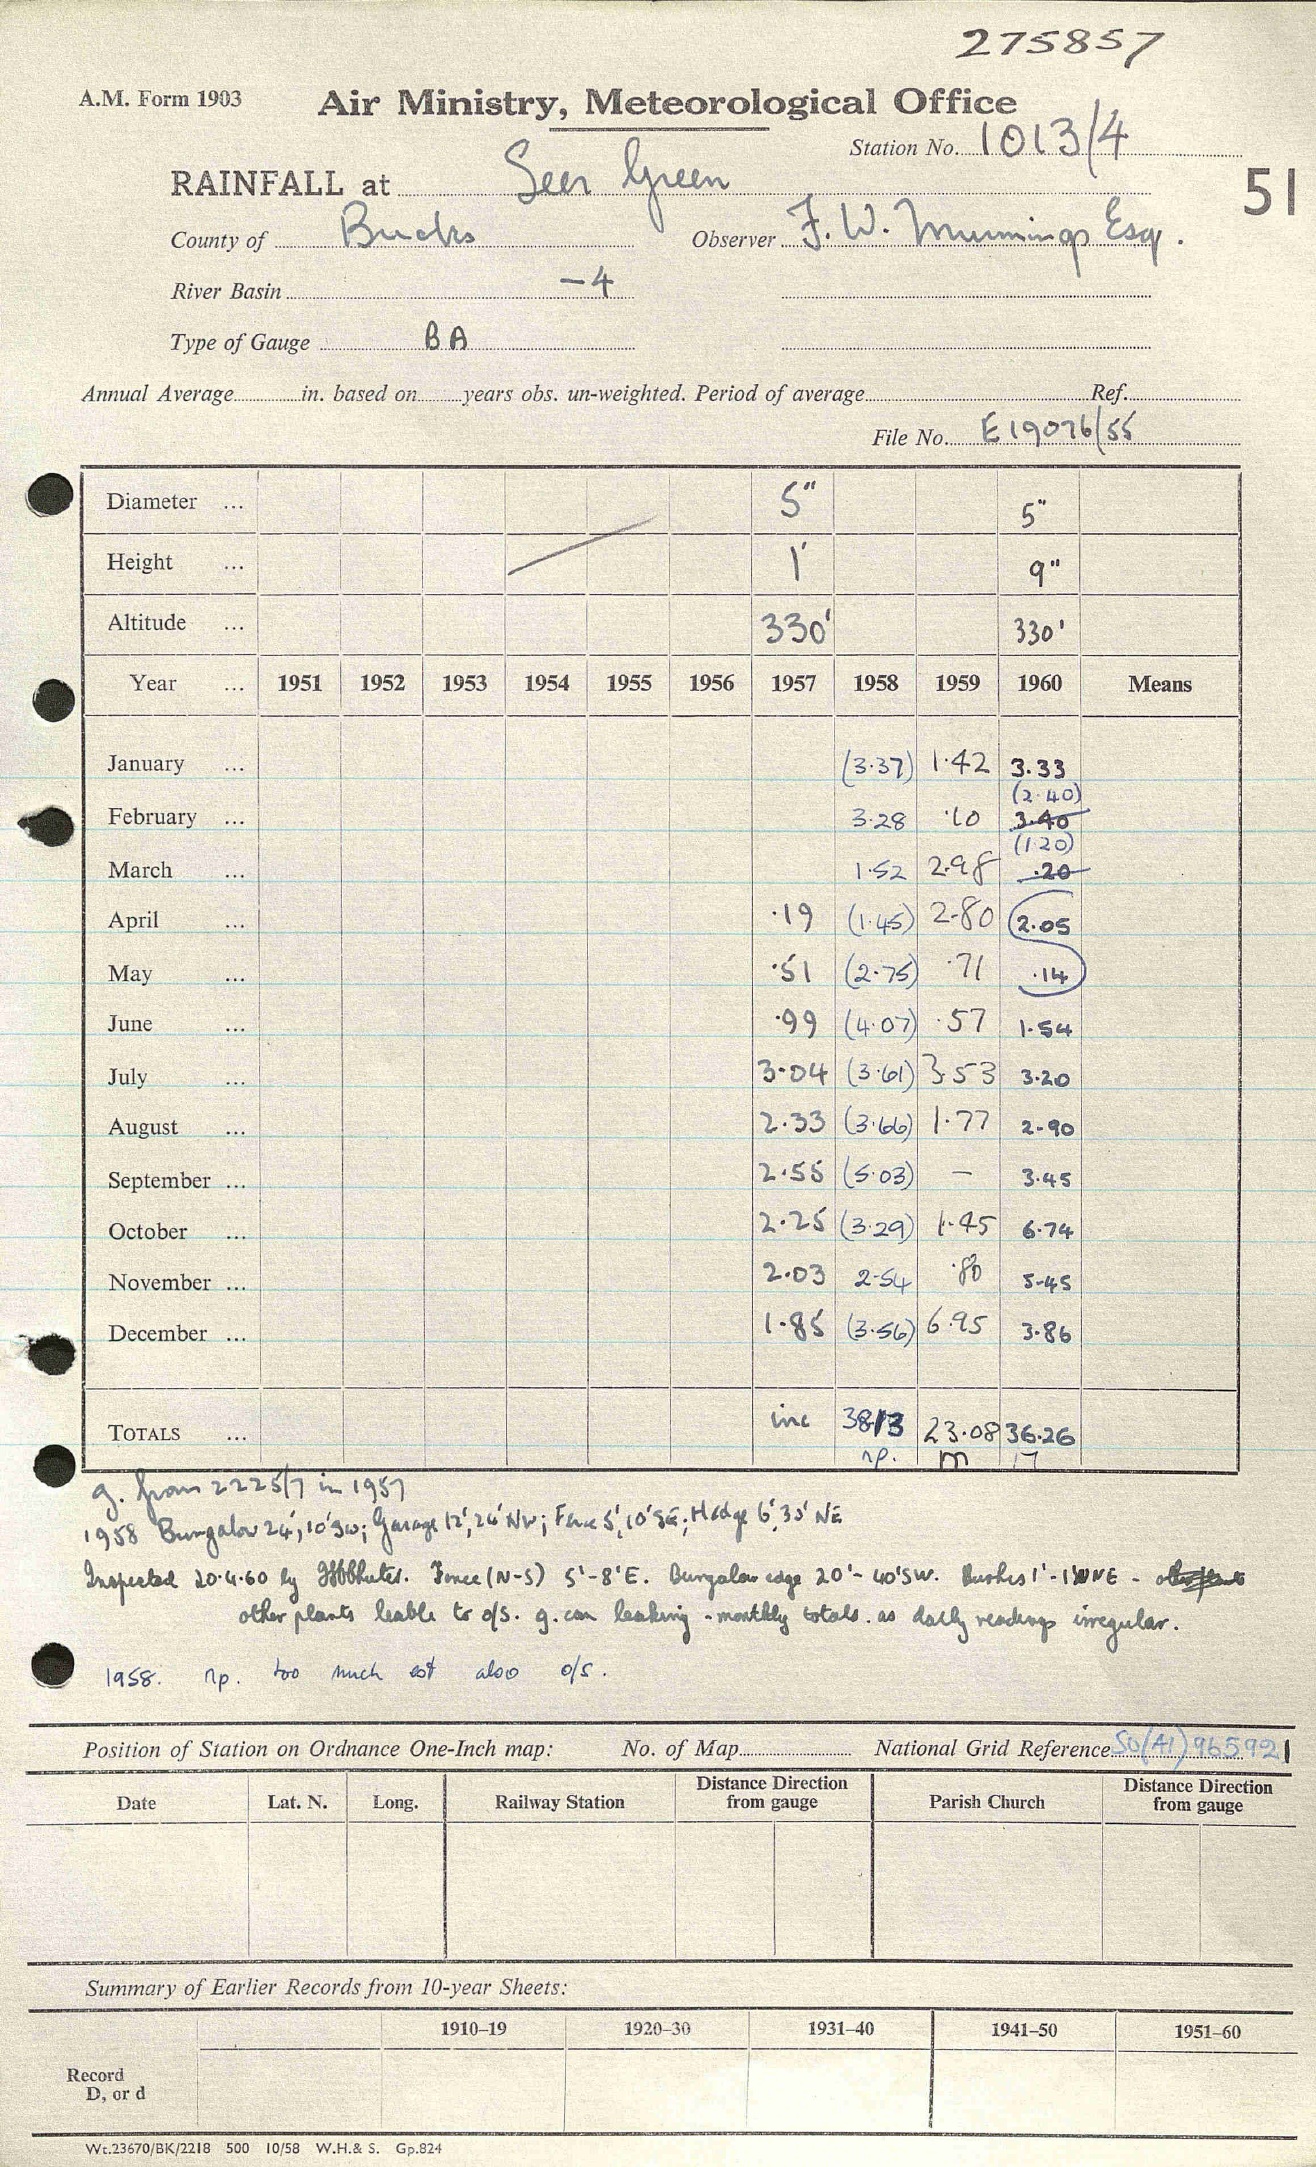 275857
A.M. Form 1903 Air Ministry, Meteorological Office
Station No. 1013/4
RAINFALL at Seer Green
51
County of Bucks Observer F. W. Munnings Esq.
River Basin -4
Type of Gauge BA
Annual Average in. based on years obs. un-weighted. Period of average Ref.
File No. E19076/55
Diameter ... 5" 5"
Height ... 1' 9"
Altitude ... 330' 330'
Year ... 1951 1952 1953 1954 1955 1956 1957 1958 1959 1960 Means
January ... (3.37) 1.42 3.33
(2.40)
February ... 3.28 .10 3.40
(1.20)
March ... 1.52 2.98 .20
April ... .19 (1.45) 2.80 (2.05
May ... .51 (2.75) .71 .14)
June ... .99 (4.07) .57 1.54
July ... 3.04 (3.61) 3.53 3.20
August ... 2.33 (3.66) 1.77 2.90
September ... 2.55 (5.03) - 3.45
October ... 2.25 (3.29) 1.45 6.74
November ... 2.03 2.54 .80 5.45
December ... 1.85 (3.56) 6.95 3.86
TOTALS ... inc 38.13 23.08 36.26
np. m
g. from 2225/7 in 1957
1958 Bungalow 24', 10'SW; Garage 12', 26' NW; Fence 5', 10' SE; Hedge 6', 35' NE
Inspected 20.4.60 by Fence (N-S) 5'-8'E. Bungalow edge 20'-40'SW. Bushes 1'- NE -
other plants leable to o/s. g. can leaking - monthly totals. as daily readings irregular.
1958. np. too much est also o/s.
Position of Station on Ordnance One-Inch map: No. of Map National Grid Reference SU(41)965921
Date Lat. N. Long. Railway Station Distance Direction from gauge Parish Church Distance Direction from gauge
Summary of Earlier Records from 10-year Sheets:
1910–19 1920–30 1931–40 1941–50 1951–60
Record
D, or d
Wt.23670/BK/2218 500 10/58 W.H.& S. Gp.824